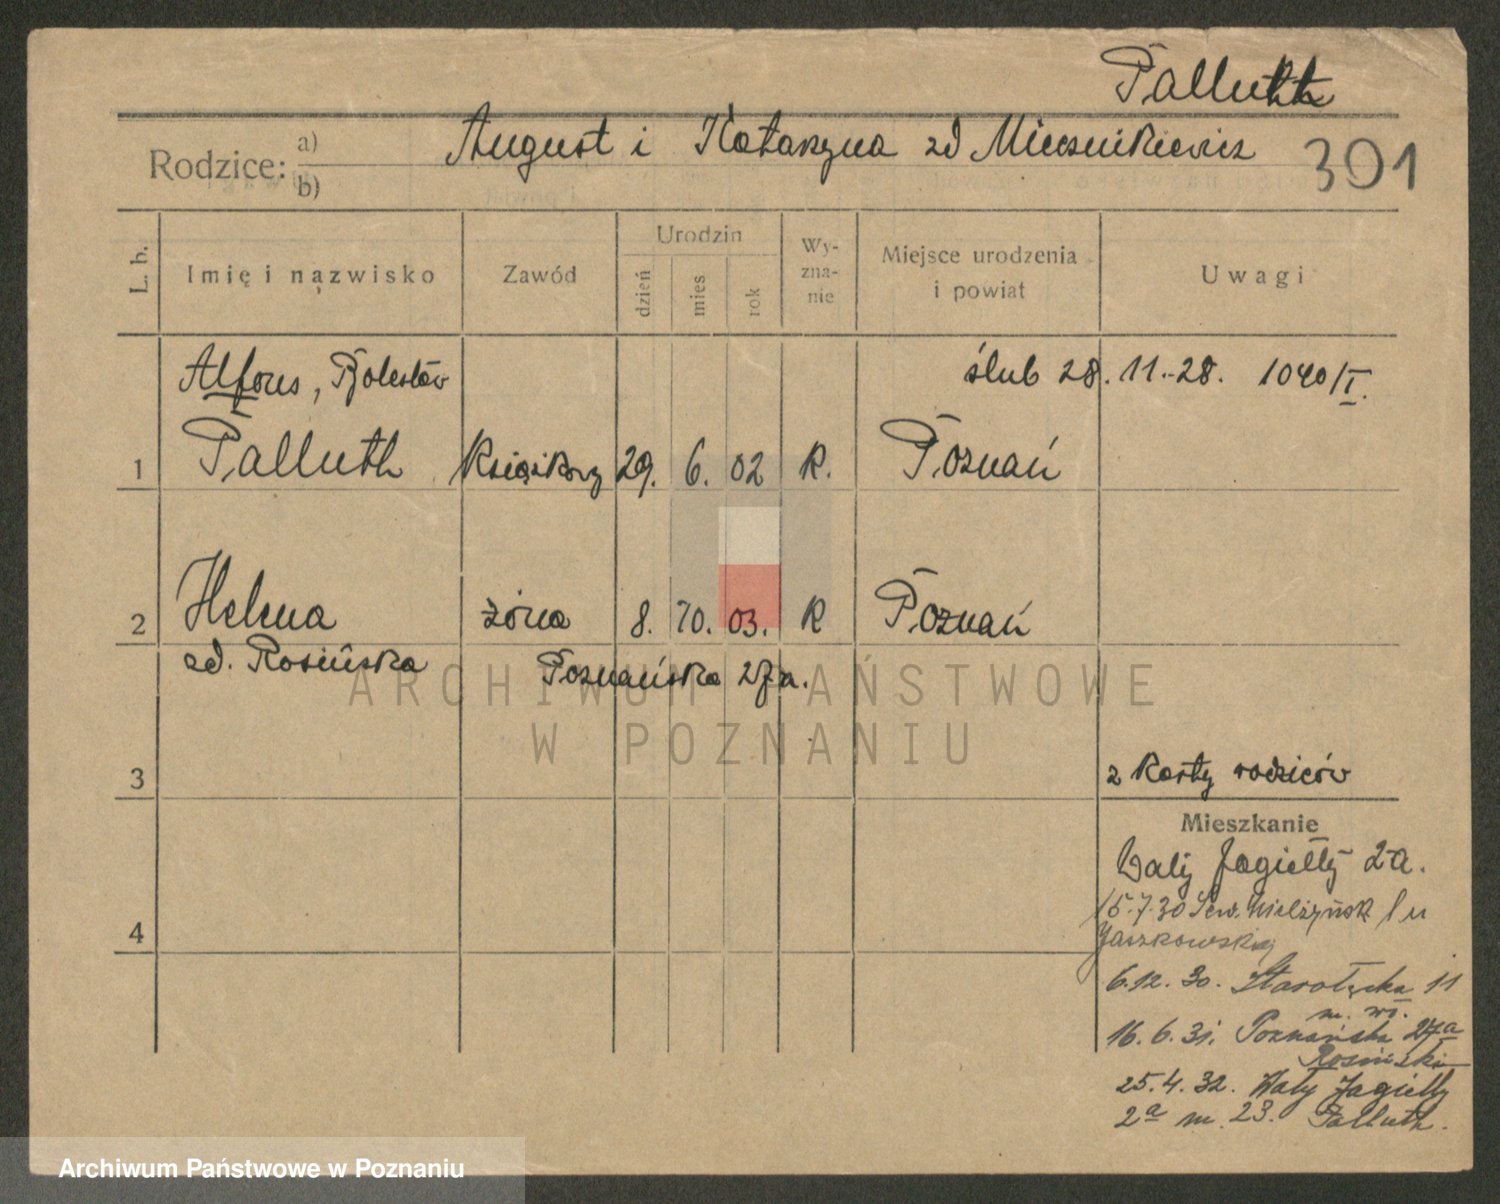 Talluth
Rodzice: a) August i Katarzyna zd
b)
301
L. b. Imię i nazwisko Zawód Urodzin dzień mies rok Wyznanie Miejsce urodzenia i powiat Uwagi
Alfons, Bolesław ślub 28. 11.-28. 1040/I.
1 Talluth Książkowy 29. 6. 02 R. Poznań
2 Helena żona 8. 10. 03. R Poznań
zd. Rosińska Poznańska 27a.
ARCHIWUM PAŃSTWOWE
W POZNANIU
3 z Karty rodziców
Mieszkanie
Wały Jagiełły 2a.
4 15.7.30 Sew. Mielżyńsk
6.12.30. Starołęcka 11
m. wł.
16.6.31. Poznańska 27a
Rosiński
25.4.32. Wały Jagiełły
2a m. 23. Talluth.
Archiwum Państwowe w Poznaniu